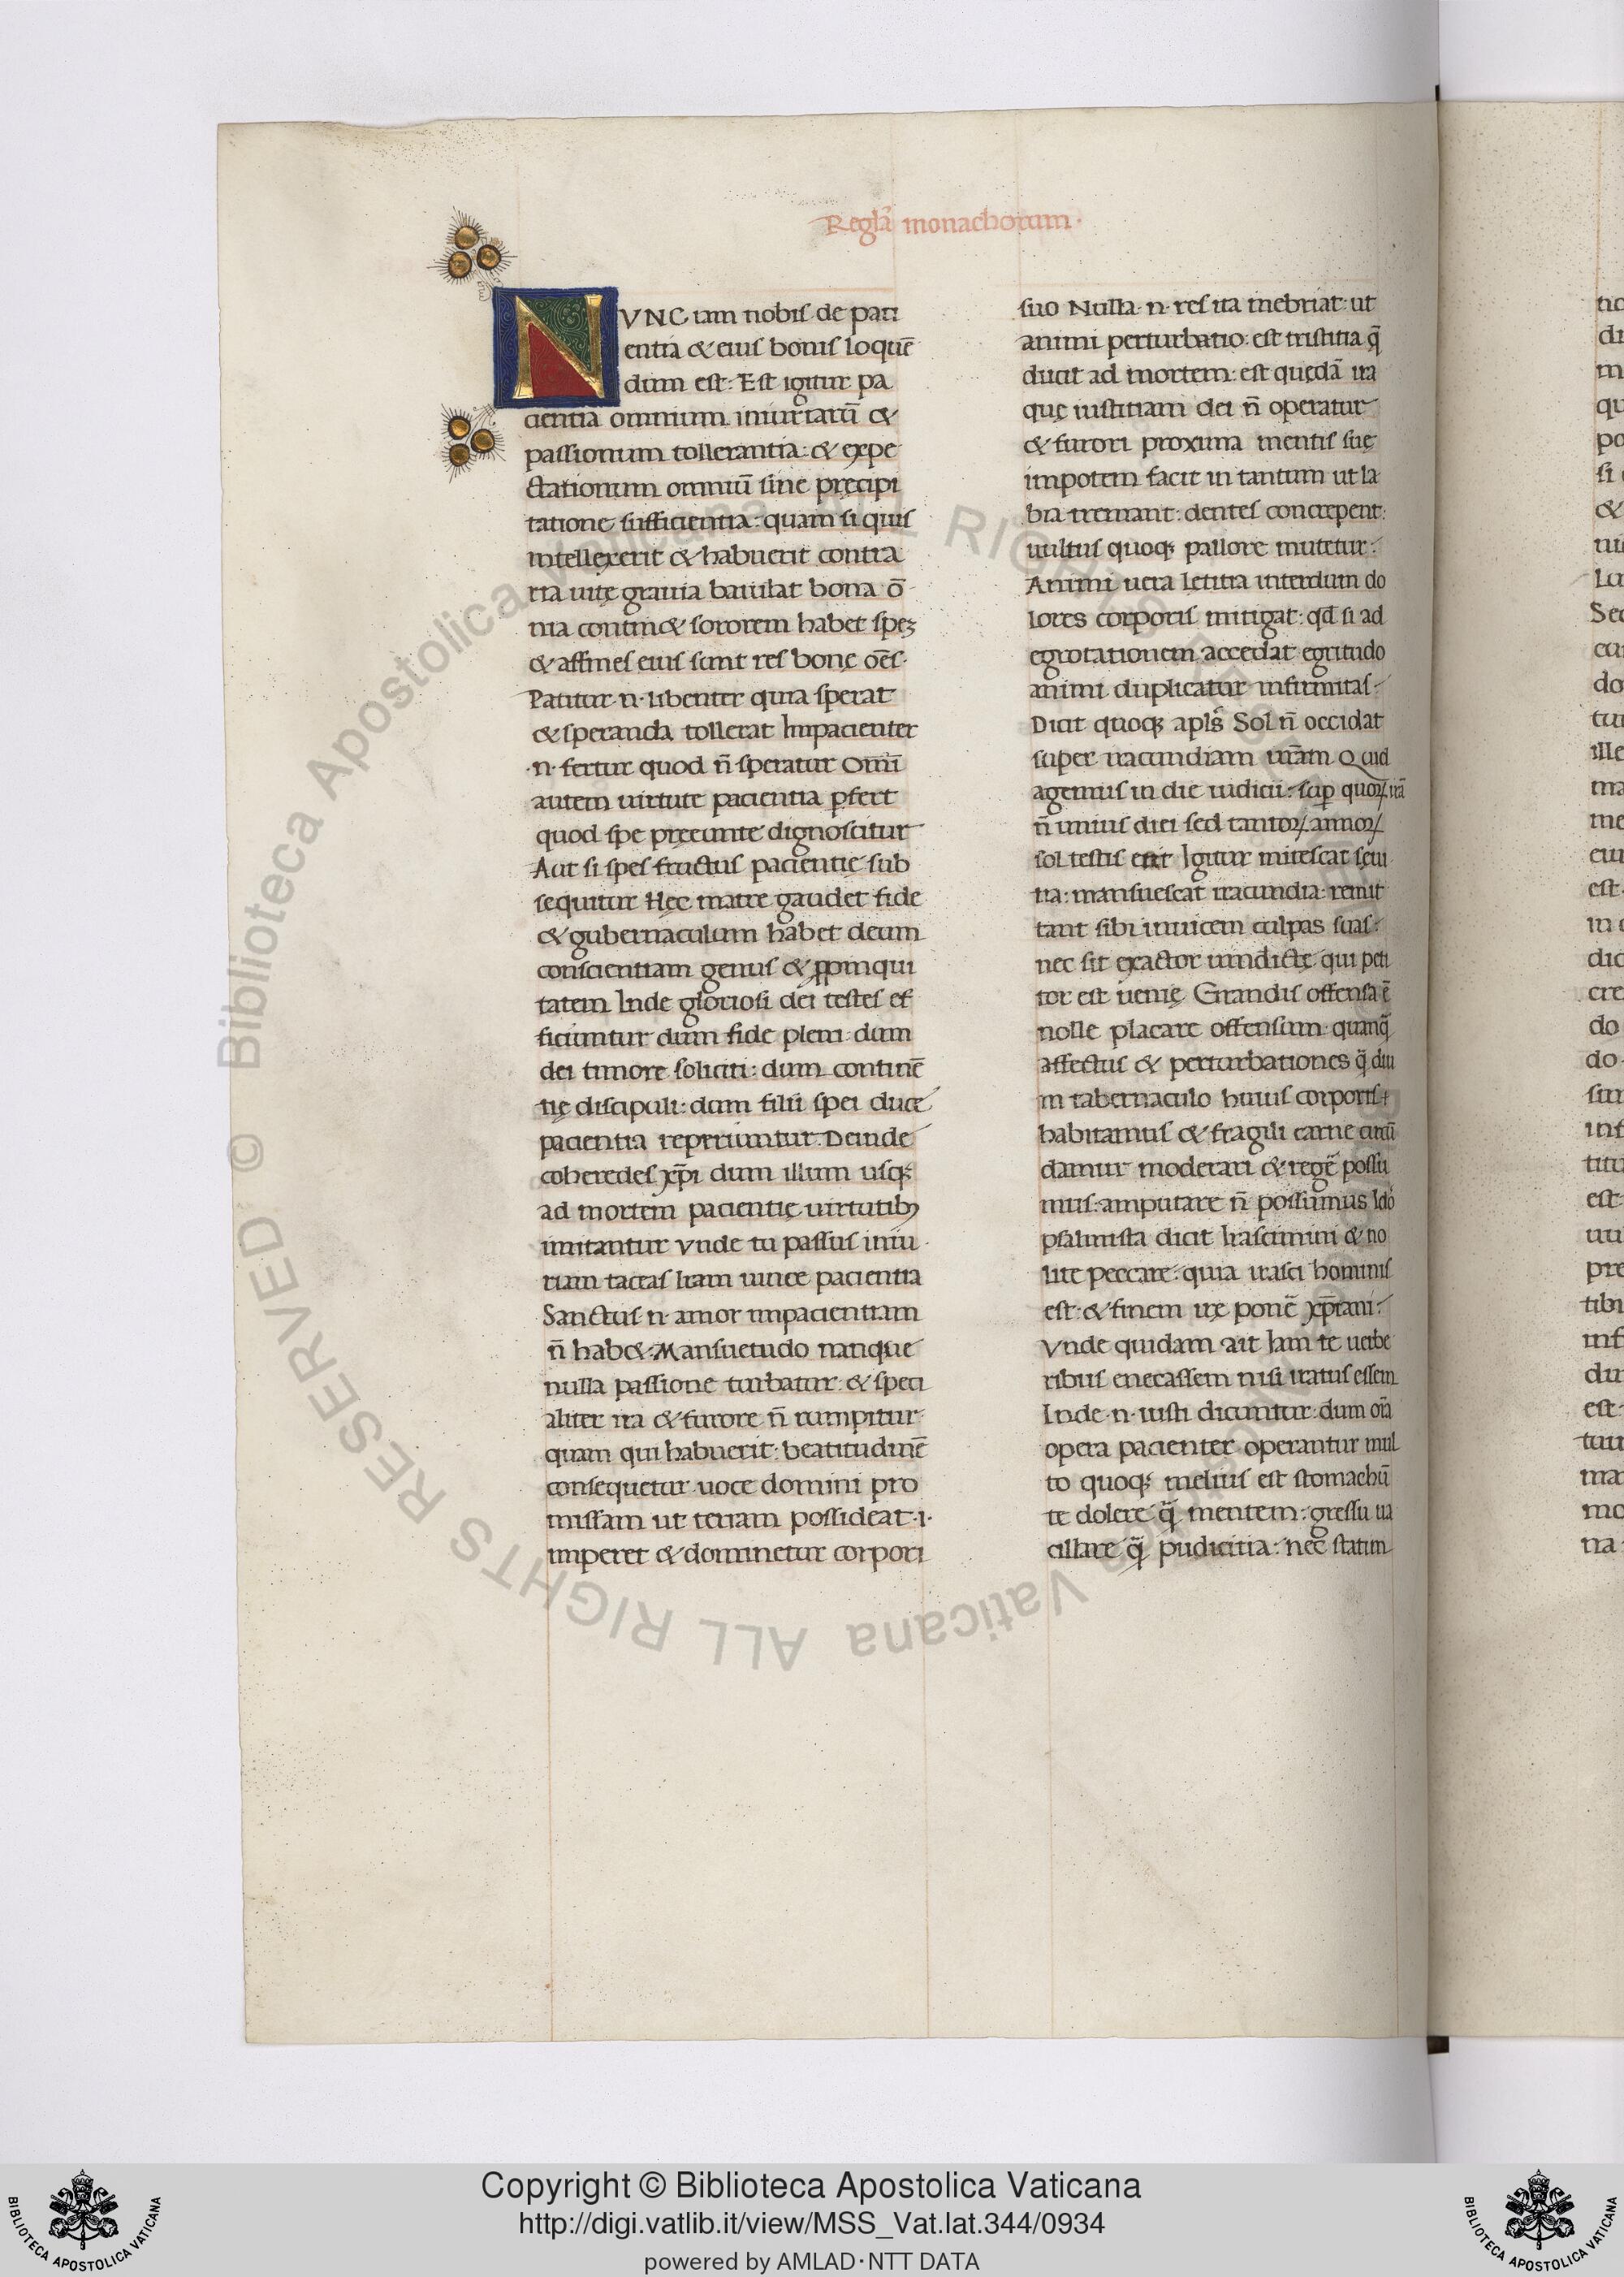 Regla monachorum·
NVNC iam nobis de pati
entia & eius bonis loquē
dum est: Est igitur pa
cientia omnium iniuriarū &
passionum tollerantia: & expe
ctationum omniū sine pręcipi
tatione sufficientia: quam si quis
intellexerit & habuerit contra
ria uitę grauia baiulat bona ō
nia contin& sororem habet spez
& affines eius sunt res bonę oēs·
Patitur·n·libenter quia sperat
& speranda tollerat Impacienter
·n·fertur quod n̄ speratur Omī
autem uirtute pacientia ꝑfert
quod spe pręeunte dignoscitur
Aut si spes fructus pacientię sub
sequitur Hęc matre gaudet fide
& gubernaculum habet deum
conscientiam genus & ꝓpinqui
tatem Inde gloriosi dei testes ef
ficiuntur dum fide pleni dum
dei timore soliciti: dum continē
tię discipuli: dum filii spei duce
pacientia reperiuntur. Deinde
coheredes xp̄i dum illum usqȝ
ad mortem pacientię uirtutibȝ
imitantur Vnde tu passus iniu
riam taceas Iram uince pacientia
Sanctus·n·amor impacientiam
n̄ hab& Mansuetudo nanque
nulla passione turbatur: & speci
aliter ira & furore n̄ rumpitur
quam qui habuerit: beatitudinē
consequetur uoce domini pro
missam ut terram possideat·i·
imperet & dominetur corpori
suo Nulla·n·res ita inebriat ut
animi perturbatio: est tristitia q̄
ducit ad mortem: est quędā ira
quę iustitiam dei n̄ operatur
& furori proxima mentis suę
impotem facit in tantum ut la
bia tremant: dentes concrepent:
uultus quoqȝ pallore mutetur:
Animi uera letitia interdum do
lores corporis mitigat: qd̄ si ad
egrotationem accedat egritudo
animi duplicatur infirmitas:
Dicit quoqȝ apl̄s Sol n̄ occidat
super iracundiam ur̄am Quid
agemus in die iudicii: sup̱ quoꝝ irā
n̄ unius diei sed tantoꝝ annoꝝ
sol testis erit Igitur mitescat sęui
tia: mansuescat iracundia: remit
tant sibi inuicem culpas suas:
nec sit exactor uindictę qui peti
tor est uenię Grandis offensa ē
nolle placare offensum quanq̄
affectus & perturbationes q̄ diu
in tabernaculo huius corporis
habitamus & fragili carne circū
damur moderari & regē possu
mus: amputare n̄ possumus Idō
psalmista dicit Irascimini & no
lite peccare: quia irasci hominis
est & finem irę ponē xp̄iani:
Vnde quidam ait Iam te uerbe
ribus enecassem nisi iratus essem
Inde·n·iusti dicuntur: dum oīa
opera pacienter operantur mul
to quoqȝ melius est stomachū
te dolere q̄ mentem: gressu ua
cillare q̄ pudicitia: nec statim
© Biblioteca Apostolica Vaticana ALL RIGHTS RESERVED
Copyright © Biblioteca Apostolica Vaticana
http://digi.vatlib.it/view/MSS_Vat.lat.344/0934
powered by AMLAD·NTT DATA
BIBLIOTECA APOSTOLICA VATICANA
BIBLIOTECA APOSTOLICA VATICANA